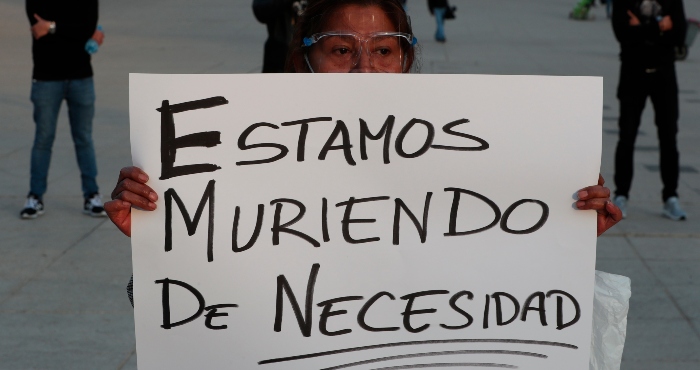 ESTAMOS
MURIENDO
DE NECESIDAD